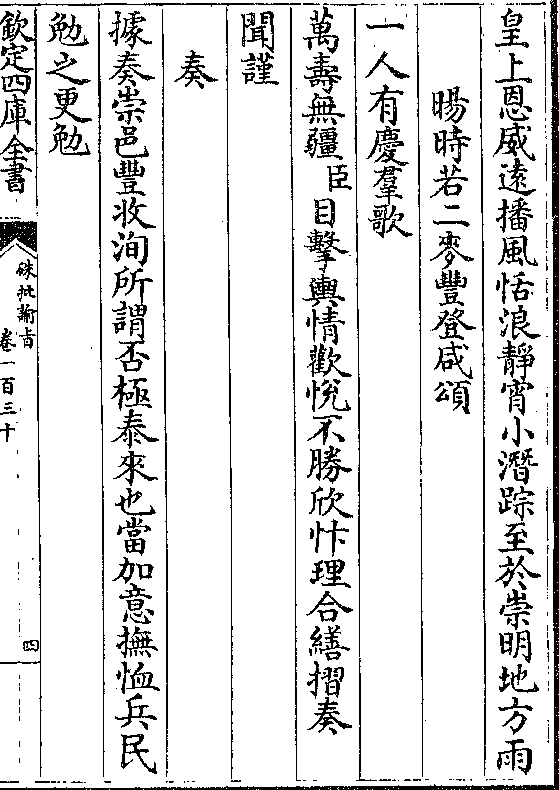 皇上恩威遠播風恬浪靜宵小潛踪至於崇明地方雨
暘時若二麥豐登咸頌
一人有慶羣歌
萬壽無疆臣目擊輿情歡悅不勝欣忭理合繕摺奏
聞謹
奏
據奏崇邑豐收洵所謂否極泰來也當加意撫恤兵民
勉之更勉
欽定四庫全書
硃批諭旨
卷一百三十
四